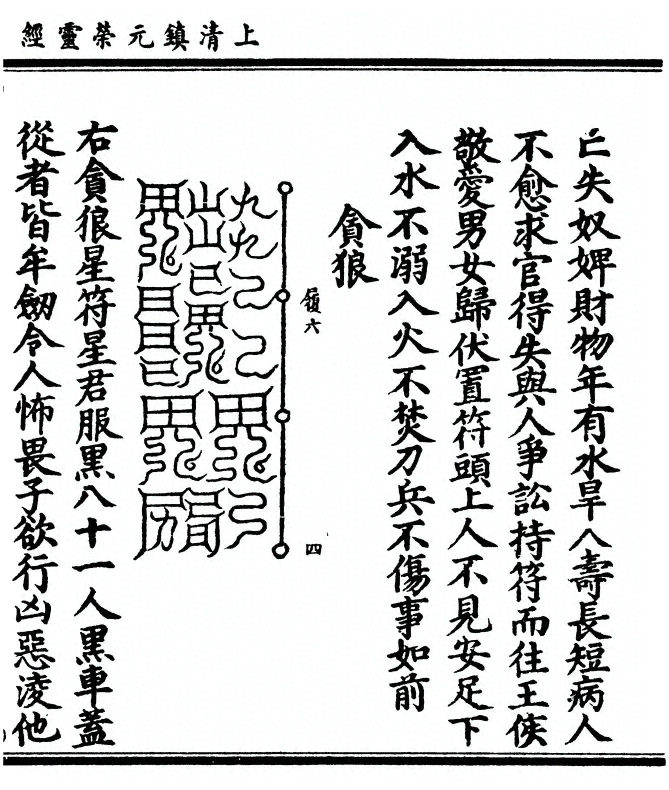 上清鎮元榮靈經
亡失奴婢財物年有水旱人壽長短病人
不愈求官得失與人爭訟持符而往王侯
敬愛男女歸伏置符頭上人不見安足下
入水不溺入火不焚刀兵不傷事如前
貪狼
履六
四
右貪狼星符星君服黑八十一人黑車蓋
從者皆牟劒令人怖畏子欲行凶惡淩他